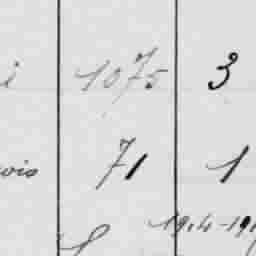 i 1075 3
vois 71 1
1914-191